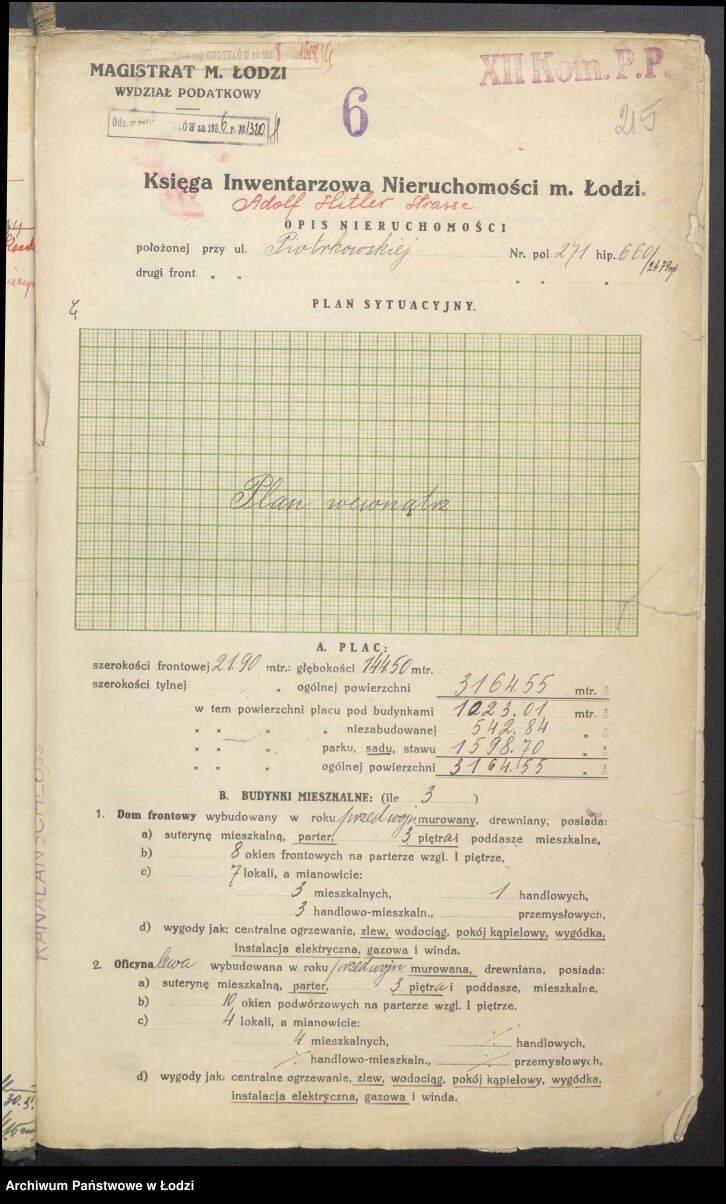 MAGISTRAT M. ŁODZI
WYDZIAŁ PODATKOWY
XII Kom. P.P.
6
215
Księga Inwentarzowa Nieruchomości m. Łodzi.
Adolf Hitler Strasse
OPIS NIERUCHOMOŚCI
położonej przy ul. Piotrkowskiej Nr. pol. 271 hip. 660/2479
drugi front " " " " "
PLAN SYTUACYJNY.
Plan wewnątrz
A. PLAC:
szerokości frontowej 21.90 mtr.: głębokości 144 50 mtr.
szerokości tylnej " ogólnej powierzchni 3164.55 mtr. ²
w tem powierzchni placu pod budynkami 1023.01 mtr. ²
" " " " niezabudowanej 542.84 " ²
" " " parku, sadu, stawu 1598.70 " ²
" " " ogólnej powierzchni 3164.55 " ²
B. BUDYNKI MIESZKALNE: (ile 3 )
1. Dom frontowy wybudowany w roku przedwojn murowany, drewniany, posiada:
a) suterynę mieszkalną, parter, 3 piętra i poddasze mieszkalne,
b) 8 okien frontowych na parterze wzgl. I piętrze,
c) 7 lokali, a mianowicie:
3 mieszkalnych, 1 handlowych,
3 handlowo-mieszkaln., przemysłowych,
d) wygody jak: centralne ogrzewanie, zlew, wodociąg, pokój kąpielowy, wygódka,
instalacja elektryczna, gazowa i winda.
2. Oficyna lewa wybudowana w roku przedwojn murowana, drewniana, posiada:
a) suterynę mieszkalną, parter, 3 piętra i poddasze, mieszkalne,
b) 10 okien podwórzowych na parterze wzgl. I piętrze.
c) 4 lokali, a mianowicie:
4 mieszkalnych, ⁒ handlowych,
⁒ handlowo-mieszkaln., ⁒ przemysłowych,
d) wygody jak: centralne ogrzewanie, zlew, wodociąg, pokój kąpielowy, wygódka,
instalacja elektryczna, gazowa i winda.
KANALANSCHLUSS
Archiwum Państwowe w Łodzi